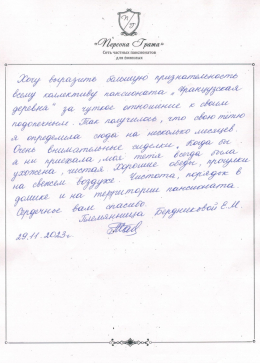 «Передай Добро»
Сеть частных пансионатов
для пожилых
Хочу выразить большую признательность
всему коллективу пансионата „Французская
деревня" за чуткое отношение к своим
подопечным. Так получилось, что свою тётю
я определила сюда на несколько месяцев.
Очень внимательные сиделки, когда бы
я ни приехала, моя тётя всегда была
ухожена, чистая. Хорошие обеды, прогулки
на свежем воздухе. Чистота, порядок в
домике и на территории пансионата.
Сердечное вам спасибо.
Племянница Бердниковой Е.М.
29.11.2023г.